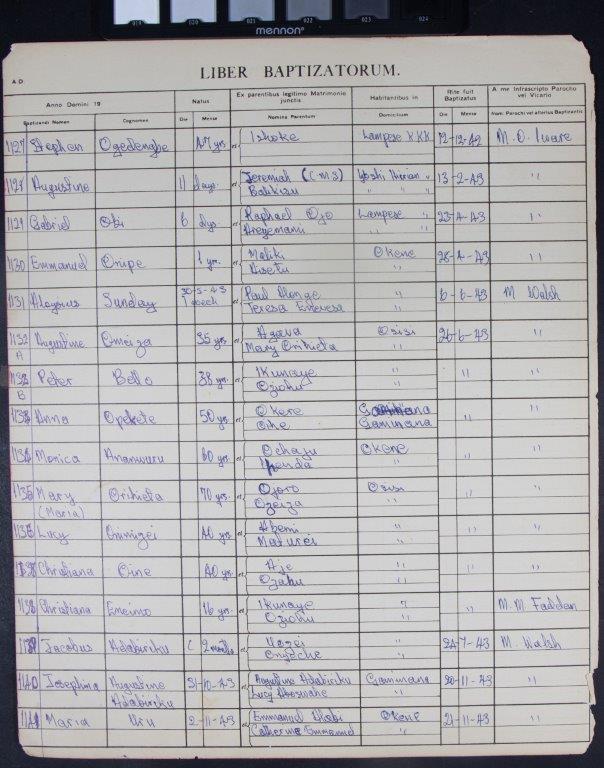 019 020 021 022 023 024
mennon
LIBER BAPTIZATORUM.
A.D.
Anno Domini 19 Natus Ex parentibus legitimo Matrimonio junctis Habitantibus in Rite fuit Baptizatus A me Infrascripto Parocho vel Vicario
Baptizandi Nomen Cognomen Die Mense Nomina Parentum Domicilium Die Mense Nom: Parochi vel alterius Baptizantis
1127 Stephen Ogedengbe 47 yrs. et Ishoke Lampese KKK 12-12-42 M. O.
1128 Augustine 11 days. et Jeremiah (CMS) 13-2-43 "
" "
1129 Gabriel Obi 6 dys. et Raphael Ojo Lampese " 23-4-43 "
" "
1130 Emmanuel Onipe 1 yr. et Maliki Okene 28-4-43 "
Aisetu "
1131 Aloysius Sunday 30-5-43 et Paul " 6-6-43 M. Walsh
1 week Teresa "
1132 Augustine Omeiza 35 yrs. et Agava Osisi 26-6-43 "
A Mary Orihieta "
Peter Bello 38 yrs. et Ikunaye " " "
B Ozohu "
Anna Opokete 50 yrs. et Okere Gaminana " "
Gaminana
Monica 60 yrs. et Ochaju Okene " "
"
Mary Orihieta 70 yrs. et Ojoro Osisi " "
(Maria) Ozeiza "
Lucy 40 yrs. et " " "
"
Christiana Oine 40 yrs. et Aje " " "
Ozohu "
Christiana Eneimo 16 yrs. et Ikunaye " " M. M. Fadden
Oziohu "
Jacobus Adabiriku 2 months et " 24-7-43 M. Walsh
"
1140 Josephina Augustine 31-10-43 et Augustine Adabiriku Gaminana 20-11-43 "
Adabiriku Lucy "
1141 Maria 2-11-43 et Emmanuel Okene 21-11-43 "
Catherine Emmanuel "